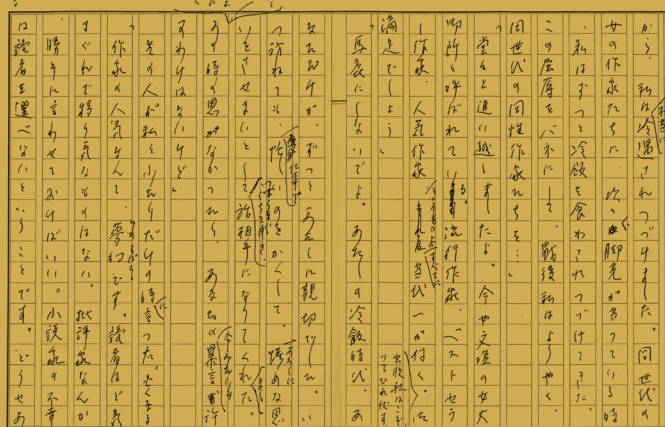 から、私は冷遇されつづけました。同世代の
女の作家たちに、次々脚光が当っている時
、私はずっと冷飯を食わされつづけてきた。
この屈辱をバネにして、戦後私はようやく、
同世代の同性作家たちを…」
堂々と追い越しましたよ。今や文壇の女大
御所と呼ばれている。流行作家、ベストセラ
ー作家、人気作家
当代一が付く。
満足でしょう」
「馬鹿にしないでよ。あたしの冷飯時代、あ
なただけが、ずっとあたしに親切でした。い
つ訪ねても、忙しいのをかくして、
いをさせまいとして話相手になってくれた。
あの時の恩がなかったら、あなたの暴言を許
すわけはないけど」
その人が私と少しだけの時
「作家の人気なんて、夢幻です。読者ほど気
まぐれで移り気なものはない。批評家なんか
勝手に言わせておけばいい。小説家の不幸
は読者を選べないということです。どうせあ